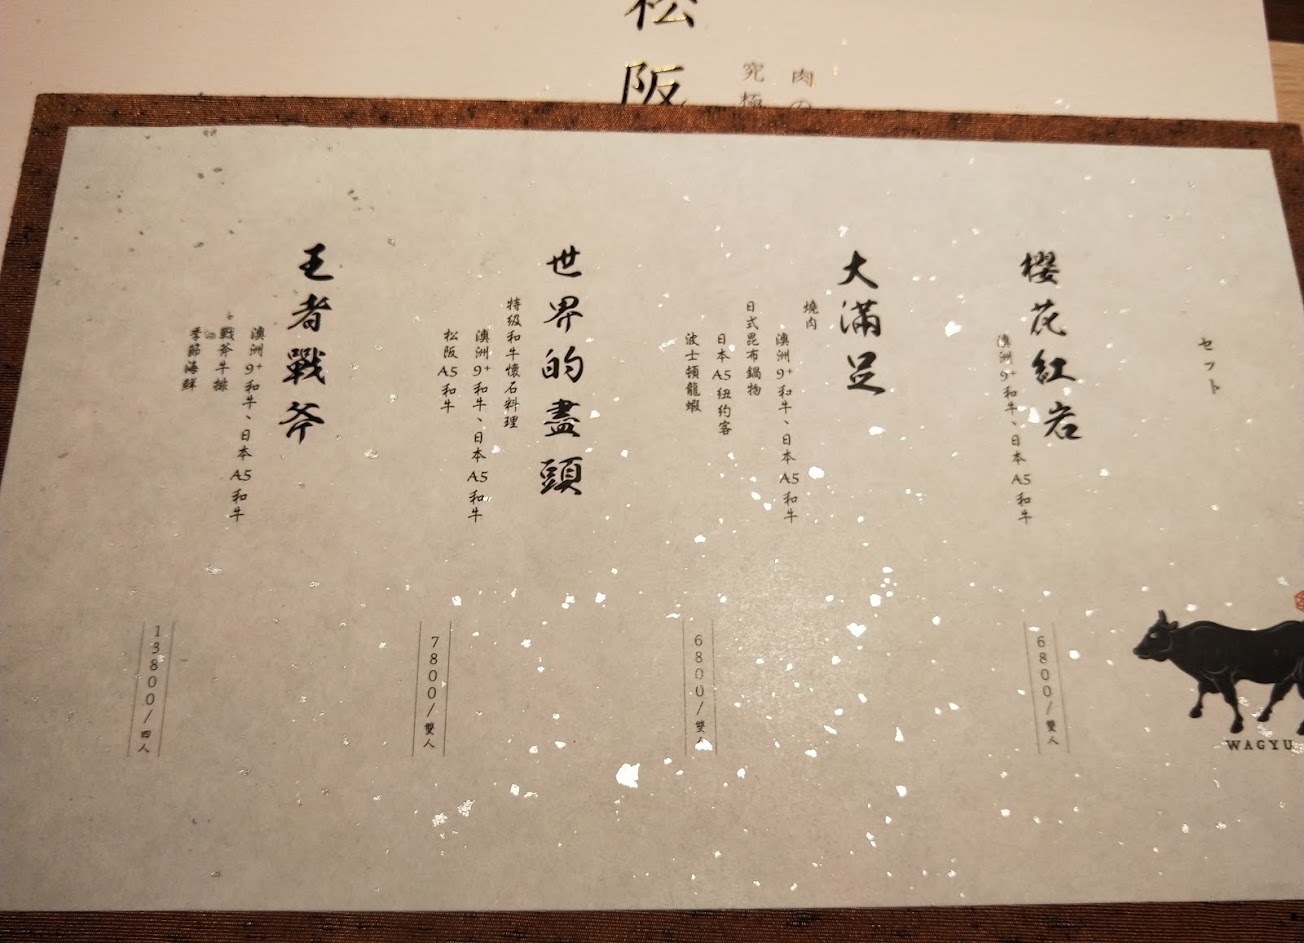 松阪
肉の
究極
セット
櫻花紅岩
澳洲9+和牛、日本A5和牛
6800/雙人
大滿足
燒肉
澳洲9+和牛、日本A5和牛
日式昆布鍋物
日本A5紐約客
波士頓龍蝦
6800/雙人
世界的盡頭
特級和牛懷石料理
澳洲9+和牛、日本A5和牛
松阪A5和牛
7800/雙人
王者戰斧
澳洲9+和牛、日本A5和牛
戰斧牛排
季節海鮮
13800/四人
WAGYU